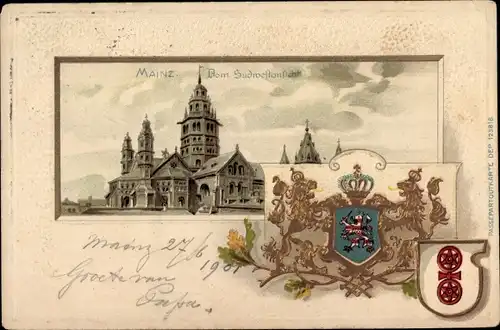 MAINZ - Dom Südwestansicht
PASSEPARTOUTKARTE DEP. 12381 S
Mainz 27/6
Groete van 1901
Papa.